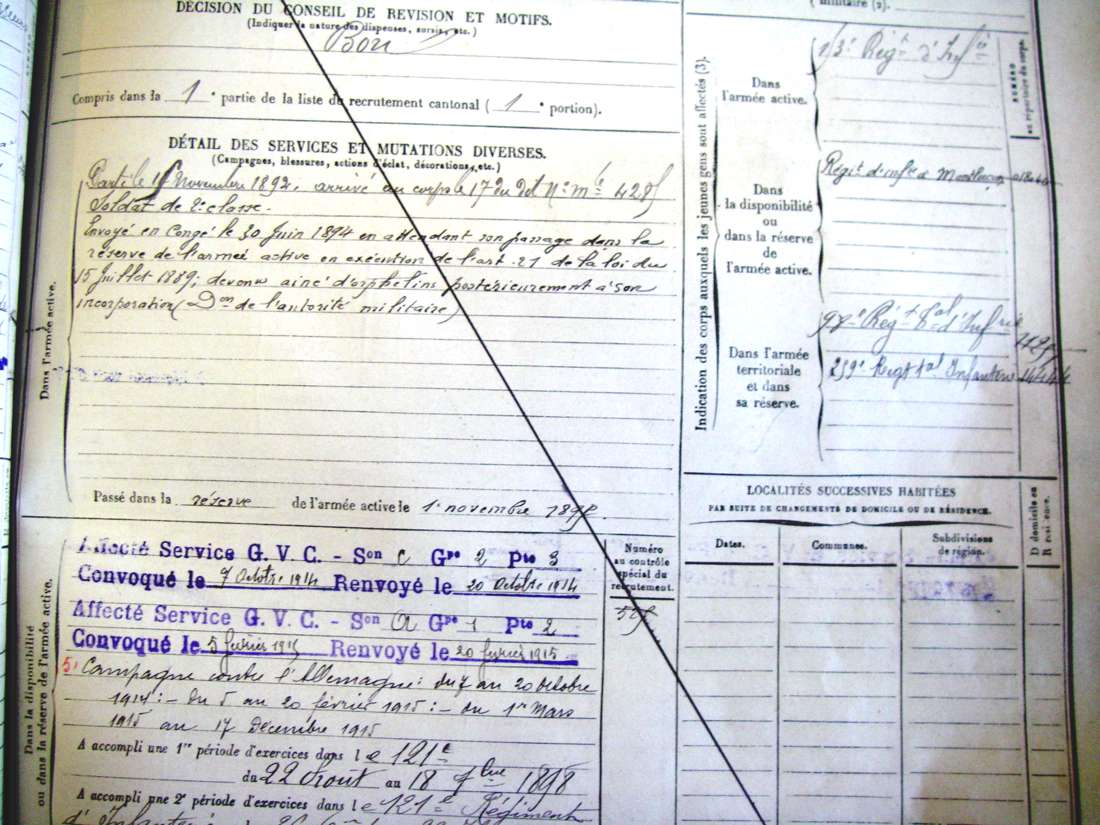 DÉCISION DU CONSEIL DE REVISION ET MOTIFS.
(Indiquer la nature des dispenses, sursis, etc.)
Bon
Compris dans la 1e partie de la liste de recrutement cantonal (1e portion).
DÉTAIL DES SERVICES ET MUTATIONS DIVERSES.
(Campagnes, blessures, actions d'éclat, décorations, etc.)
Dans l'armée active.
Parti le Novembre 1892, arrivé au corps le 17 du dit No mle
Soldat de 2e classe.
Envoyé en Congé le 30 Juin 1894 en attendant son passage dans la
réserve de l'armée active en exécution de l'art. 21 de la loi du
15 Juillet 1889; devenu ainé d'orphelins postérieurement à son
incorporation (Don de l'autorité militaire)
Passé dans la réserve de l'armée active le 1er novembre
Dans la disponibilité
ou dans la réserve de l'armée active.
Affecté Service G. V. C. - Son C Gpe 2 Pte 3
Convoqué le 7 Octobre 1914 Renvoyé le 20 Octobre 1914
Affecté Service G. V. C. - Son A Gpe 1 Pte 2
Convoqué le 5 février 1915 Renvoyé le 20 février 1915
Campagne contre l'Allemagne: du 7 au 20 octobre
1914: - Du 5 au 20 février 1915: - du 1er Mars
1915 au 17 Décembre 1915
A accompli une 1re période d'exercices dans le 121e
du 22 Aout au 18 7bre 1898
A accompli une 2e période d'exercices dans le 121e Régiment
d'Infanterie
Numéro
au contrôle
spécial du
recrutement.
militaire (2).
Indication des corps auxquels les jeunes gens sont affectés (3).
NUMÉRO
au répertoire du corps.
Dans
l'armée active.
Régt d'Infie
Dans
la disponibilité
ou
dans la réserve
de
l'armée active.
Régt d'infie de Montluçon
Dans l'armée
territoriale
et dans
sa réserve.
98e Régt tal d'Infrie
259e Régt tal Infanterie
LOCALITÉS SUCCESSIVES HABITÉES
PAR SUITE DE CHANGEMENTS DE DOMICILE OU DE RÉSIDENCE.
Dates.
Communes.
Subdivisions
de région.
D domicile ou
R résidence.